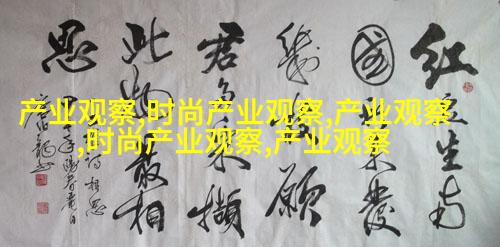 红豆生南
國 春来發
幾枝 愿
君多采撷
此物最相
思
产业观察,时尚产业观察,产业观察
,时尚产业观察,产业观察